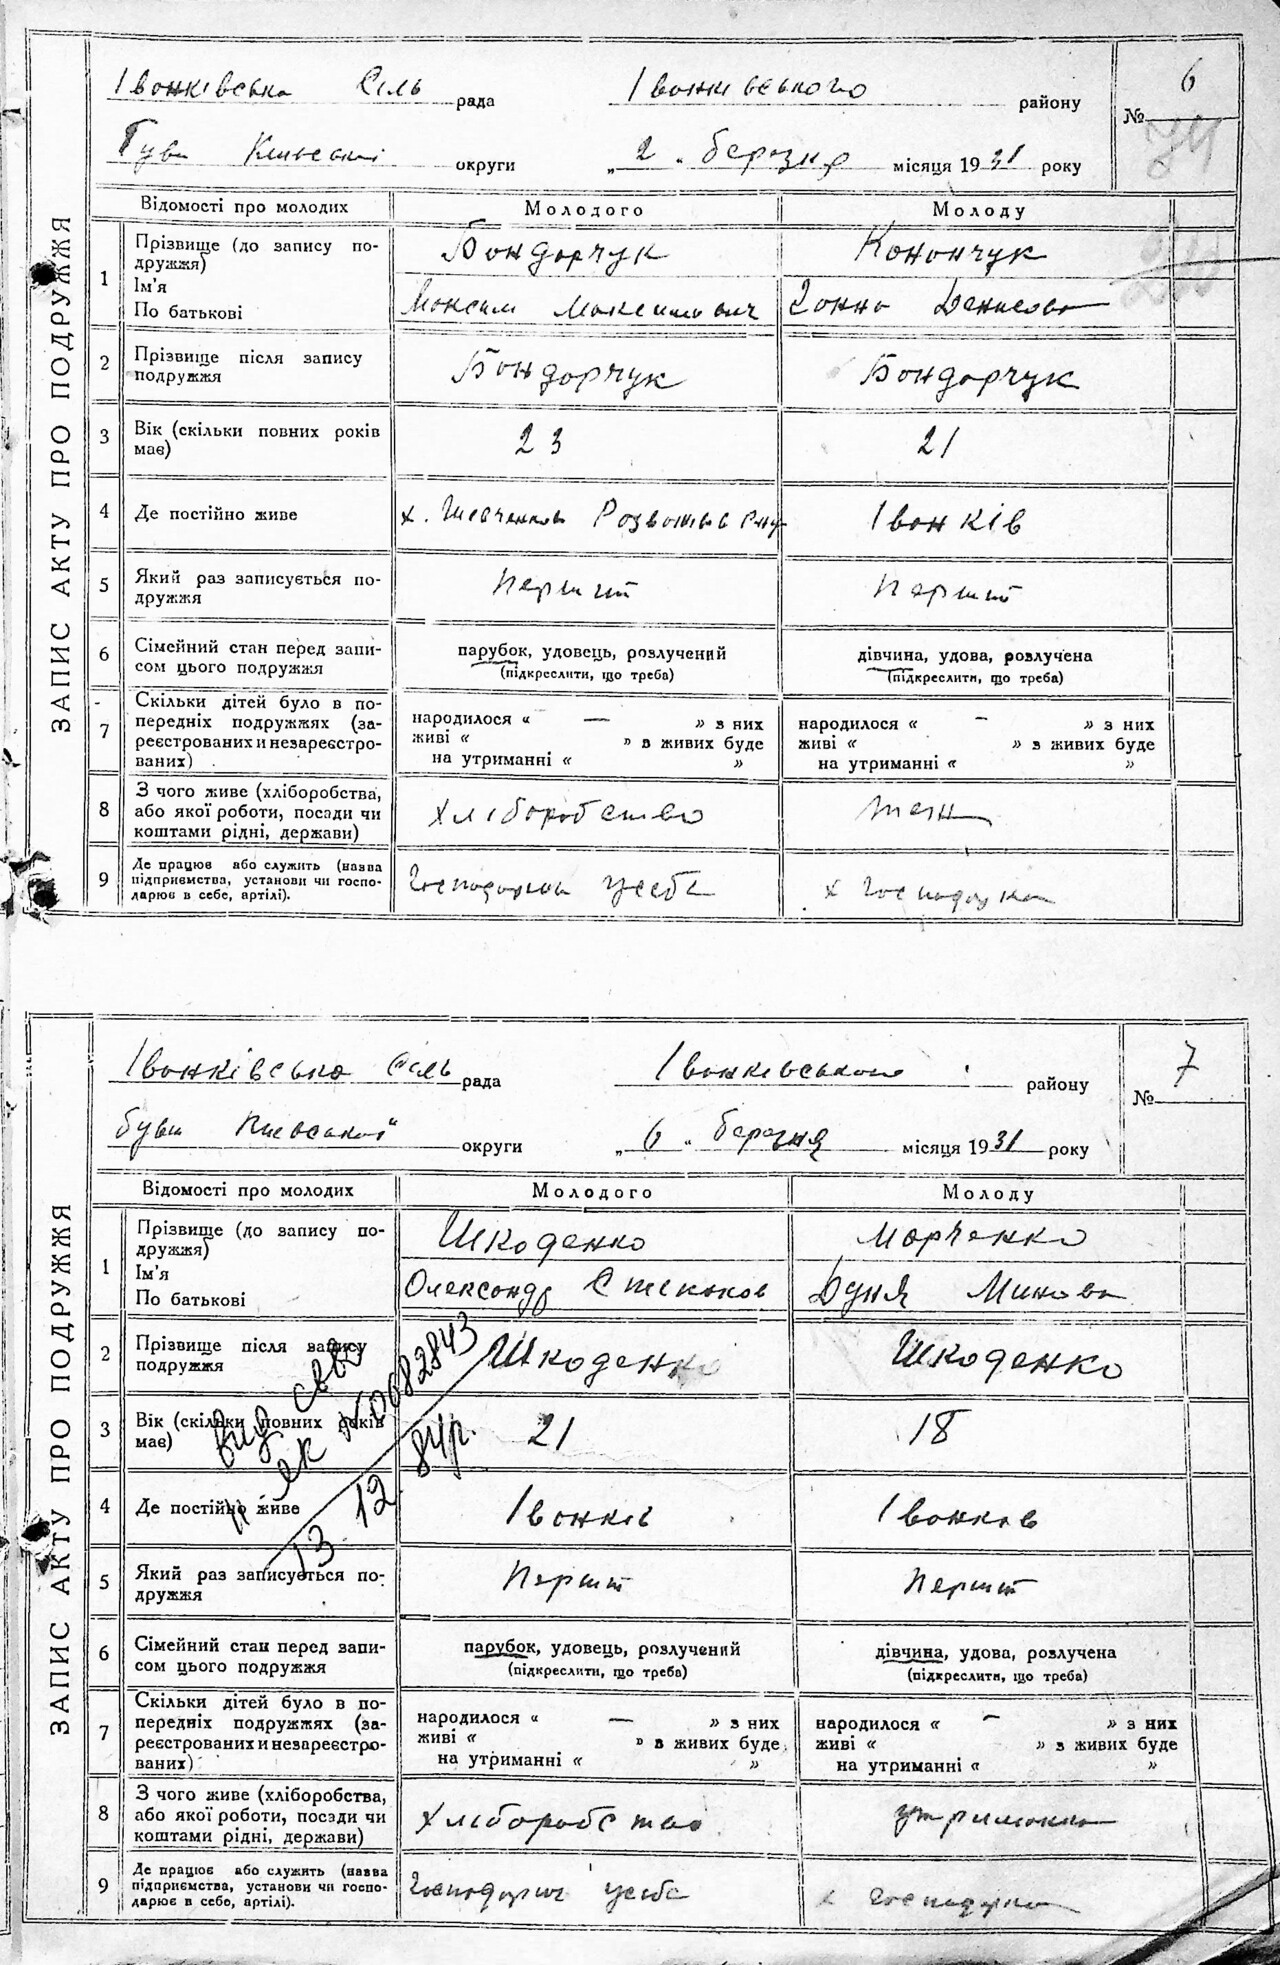 ЗАПИС АКТУ ПРО ПОДРУЖЖЯ
Івонківська Сіль рада Івонківського району № 6
Київської округи „ 2 „ березня місяця 1931 року
Відомості про молодих Молодого Молоду
1 Прізвище (до запису по- Бондорчук Конончук
дружжя)
Ім'я
По батькові Моксим Максимович Донисова
2 Прізвище після запису Бондорчук Бондорчук
подружжя
3 Вік (скільки повних років 23 21
має)
4 Де постійно живе х. Розвожів Івонків
5 Який раз записується по- Перший Перший
дружжя
6 Сімейний стан перед запи- парубок, удовець, розлучений дівчина, удова, розлучена
сом цього подружжя (підкреслити, що треба) (підкреслити, що треба)
7 Скільки дітей було в по-
передніх подружжях (за- народилося « — » з них народилося « — » з них
реєстрованих и незареєстро- живі « » в живих буде живі « » в живих буде
ваних) на утриманні « » на утриманні « »
8 З чого живе (хліборобства, хліборобство теж
або якої роботи, посади чи
коштами рідні, держави)
9 Де працює або служить (назва х господарка
підприємства, установи чи госпо-
дарює в себе, артілі).
ЗАПИС АКТУ ПРО ПОДРУЖЖЯ
Івонківсько Сіль рада Івонківського району № 7
бувш Київської округи „ 6 „ березня місяця 1931 року
Відомості про молодих Молодого Молоду
1 Прізвище (до запису по- Шкоденко Морченко
дружжя)
Ім'я
По батькові Олександр Дуня Минова
2 Прізвище після запису Шкоденко Шкоденко
подружжя
3 Вік (скільки повних років 21 18
має)
4 Де постійно живе Івонків Івонков
5 Який раз записується по- Перший Перший
дружжя
6 Сімейний стан перед запи- парубок, удовець, розлучений дівчина, удова, розлучена
сом цього подружжя (підкреслити, що треба) (підкреслити, що треба)
7 Скільки дітей було в по-
передніх подружжях (за- народилося « — » з них народилося « — » з них
реєстрованих и незареєстро- живі « » в живих буде живі « » в живих буде
ваних) на утриманні « » на утриманні « »
8 З чого живе (хліборобства, хліборобство
або якої роботи, посади чи
коштами рідні, держави)
9 Де працює або служить (назва х господарка
підприємства, установи чи госпо-
дарює в себе, артілі).
вид сво
ЕК №0682843
13. 12. 84р.